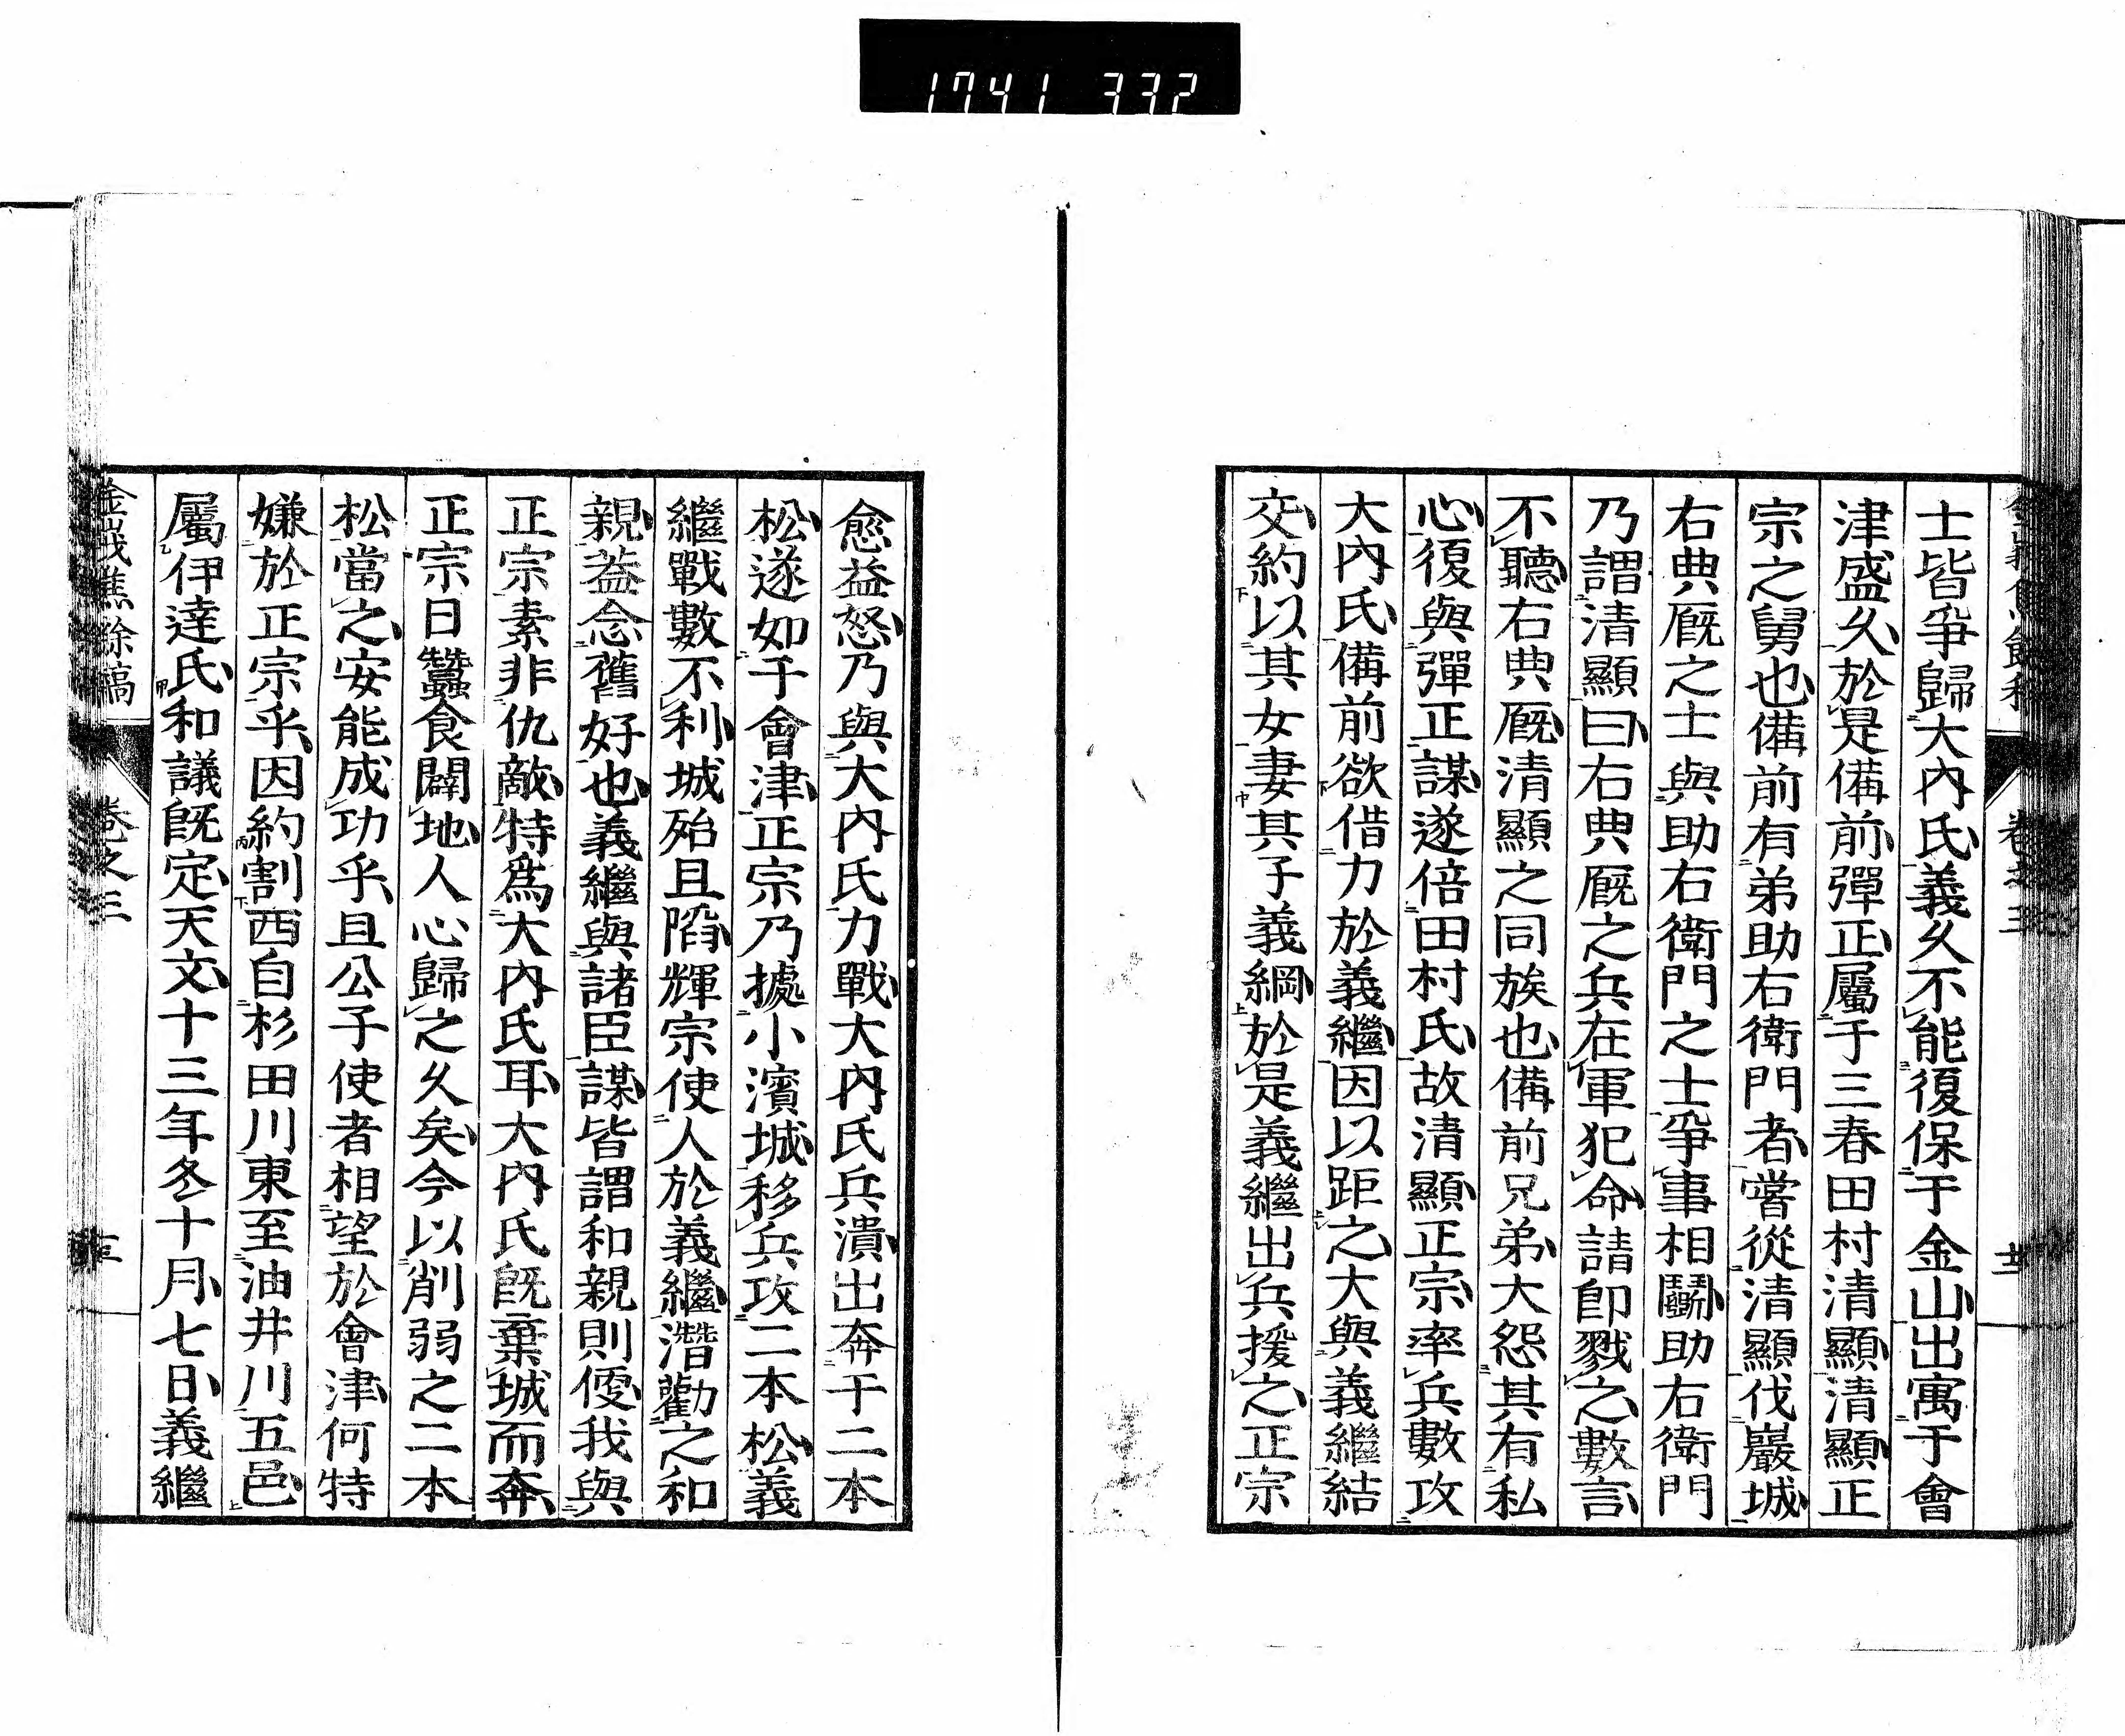 1741 332
士皆爭歸大內氏義久不能復保于金山出寓于會
津盛久於是備前彈正屬于三春田村清顯清顯正
宗之舅也備前有弟助右衛門者嘗從清顯伐巖城
右典厩之士與助右衛門之士爭事相鬭助右衛門
乃謂清顯曰右典厩之兵在軍犯命請卽戮之數言
不聽右典厩清顯之同族也備前兄弟大怨其有私
心復與彈正謀遂倍田村氏故清顯正宗率兵數攻
大內氏備前欲借力於義繼因以距之大與義繼結
交約以其女妻其子義綱於是義繼出兵援之正宗
愈益怒乃與大內氏力戰大內氏兵潰出奔于二本
松遂如于會津正宗乃據小濱城移兵攻二本松義
繼戰數不利城殆且陷輝宗使人於義繼潛勸之和
親葢念舊好也義繼與諸臣謀皆謂和親則優我與
正宗素非仇敵特爲大內氏耳大內氏旣棄城而奔
正宗日蠶食闢地人心歸之久矣今以削弱之二本
松當之安能成功乎且公子使者相望於會津何特
嫌於正宗乎因約割西自杉田川東至油井川五邑
屬伊達氏和議旣定天文十三年冬十月七日義繼
卷之三